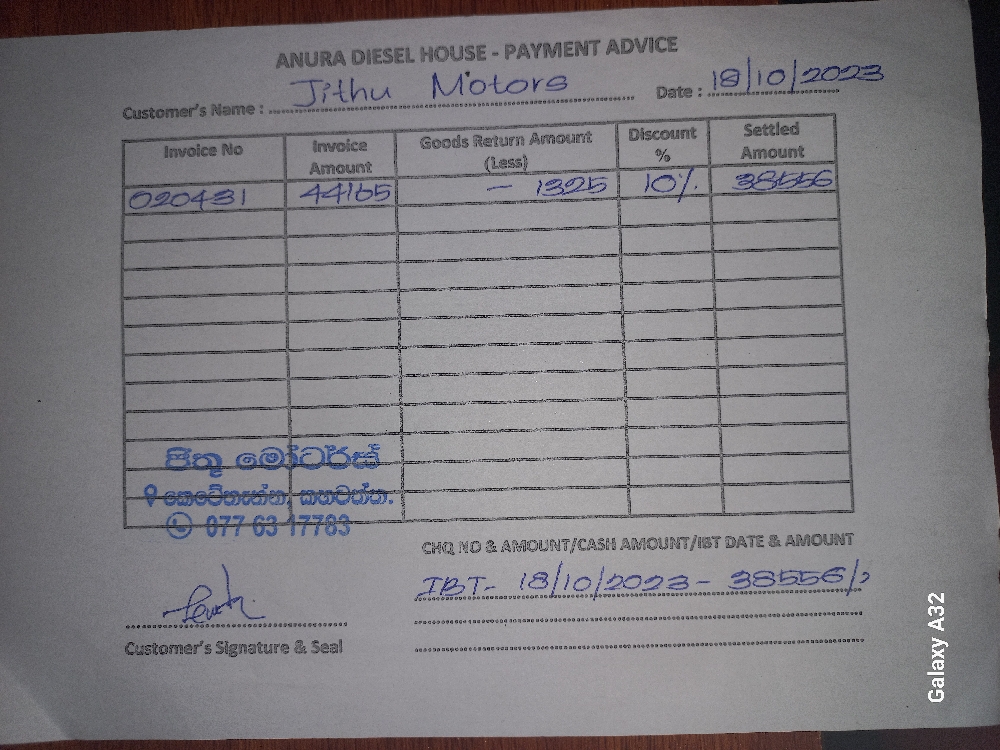 ANURA DIESEL HOUSE - PAYMENT ADVICE
Customer's Name : Jithu Motors Date : 18/10/2023
Invoice No Invoice Amount Goods Return Amount (Less) Discount % Settled Amount
020431 44165 — 1325 10% 38556
ජිතු මෝටර්ස්
කෙටේතැන්න, කහවත්ත.
077 63 17783
CHQ NO & AMOUNT/CASH AMOUNT/IBT DATE & AMOUNT
IBT- 18/10/2023 - 38556/=
Customer's Signature & Seal
Galaxy A32